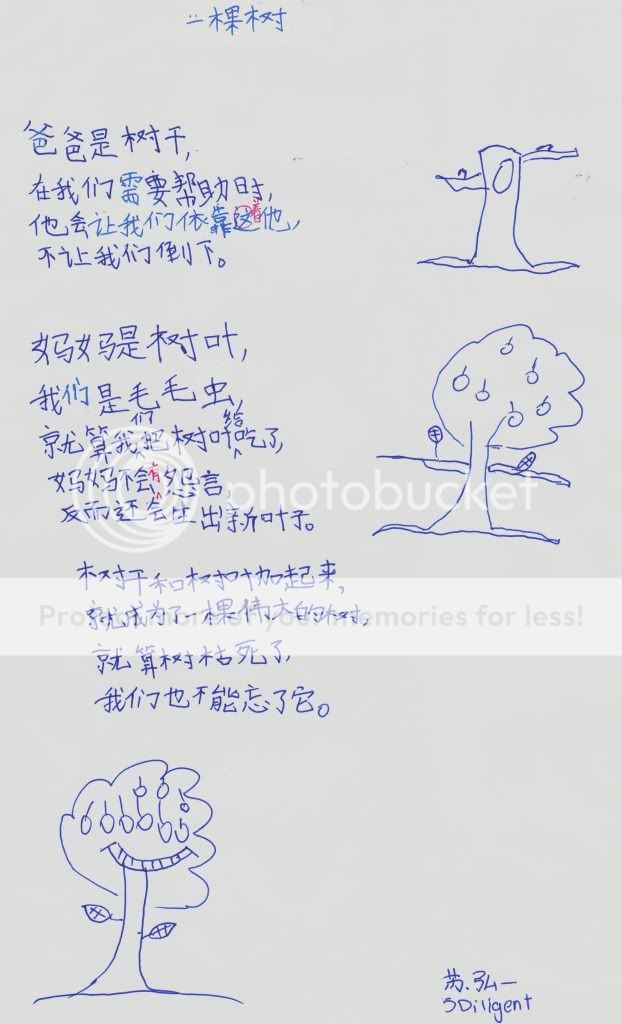 一棵树
爸爸是树干,
在我们需要帮助时,
他会让我们依靠这着他,
不让我们倒下。
妈妈是树叶,
我们是毛毛虫,
就算我们把树叶给吃了,
妈妈不会有怨言,
反而还会生出新叶子。
photobucket
树干和树叶加起来,
就成为了一棵伟大的树,
就算树枯死了,
我们也不能忘了它。
弘一
3Diligent